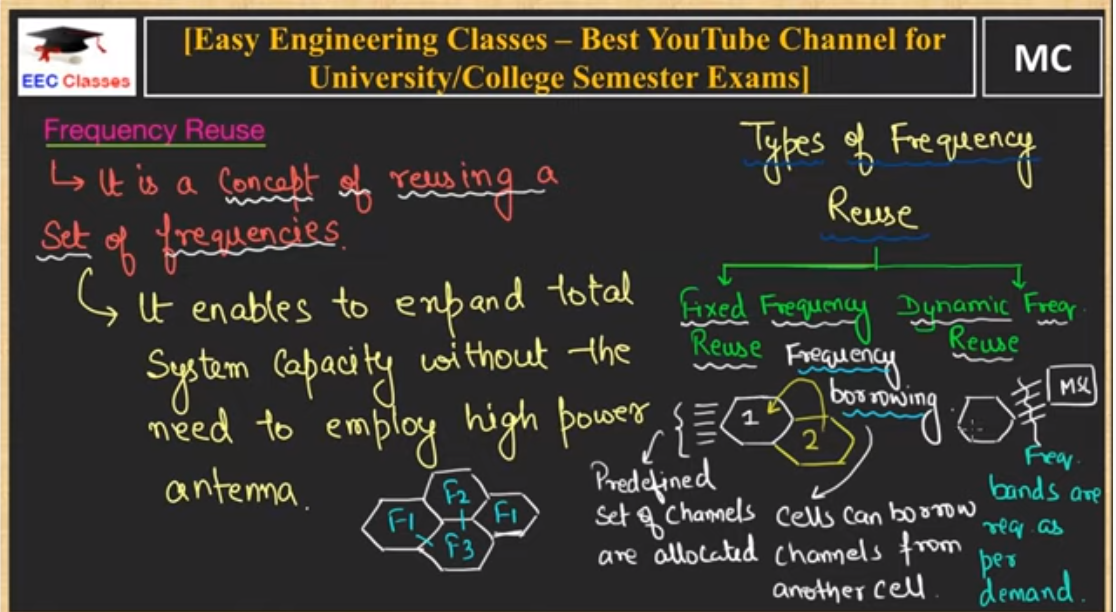 EEC Classes
[Easy Engineering Classes – Best YouTube Channel for
University/College Semester Exams]
MC
Frequency Reuse
↳ It is a Concept of reusing a
Set of frequencies.
↳ It enables to expand total
System Capacity without the
need to employ high power
antenna.
F1
F2
F3
F1
Types of Frequency
Reuse
Fixed Frequency
Reuse
Dynamic Freq.
Reuse
Frequency
borrowing
1
2
Predefined
Set of Channels
are allocated
Cells can borrow
Channels from
another cell.
MSC
Freq.
bands are
req. as
per
demand.